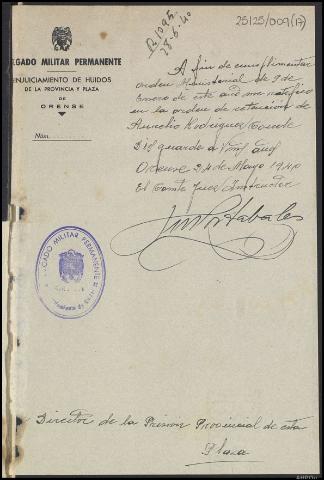 25125/009(17)
R. 1095
28-6-40
GADO MILITAR PERMANENTE
ENJUICIAMIENTO DE HUIDOS
DE LA PROVINCIA Y PLAZA
DE
ORENSE
Núm.
A fin de cumplimentar
orden Ministerial de 9 de
Enero de este año me ratifico
en la orden de retención de
Aurelio Rodriguez
Dios guarde a
Orense 24 de Mayo 1940
El Comte Juez Instructor
GADO MILITAR PERMANENTE
Director de la Prision Provincial de esta
Plaza